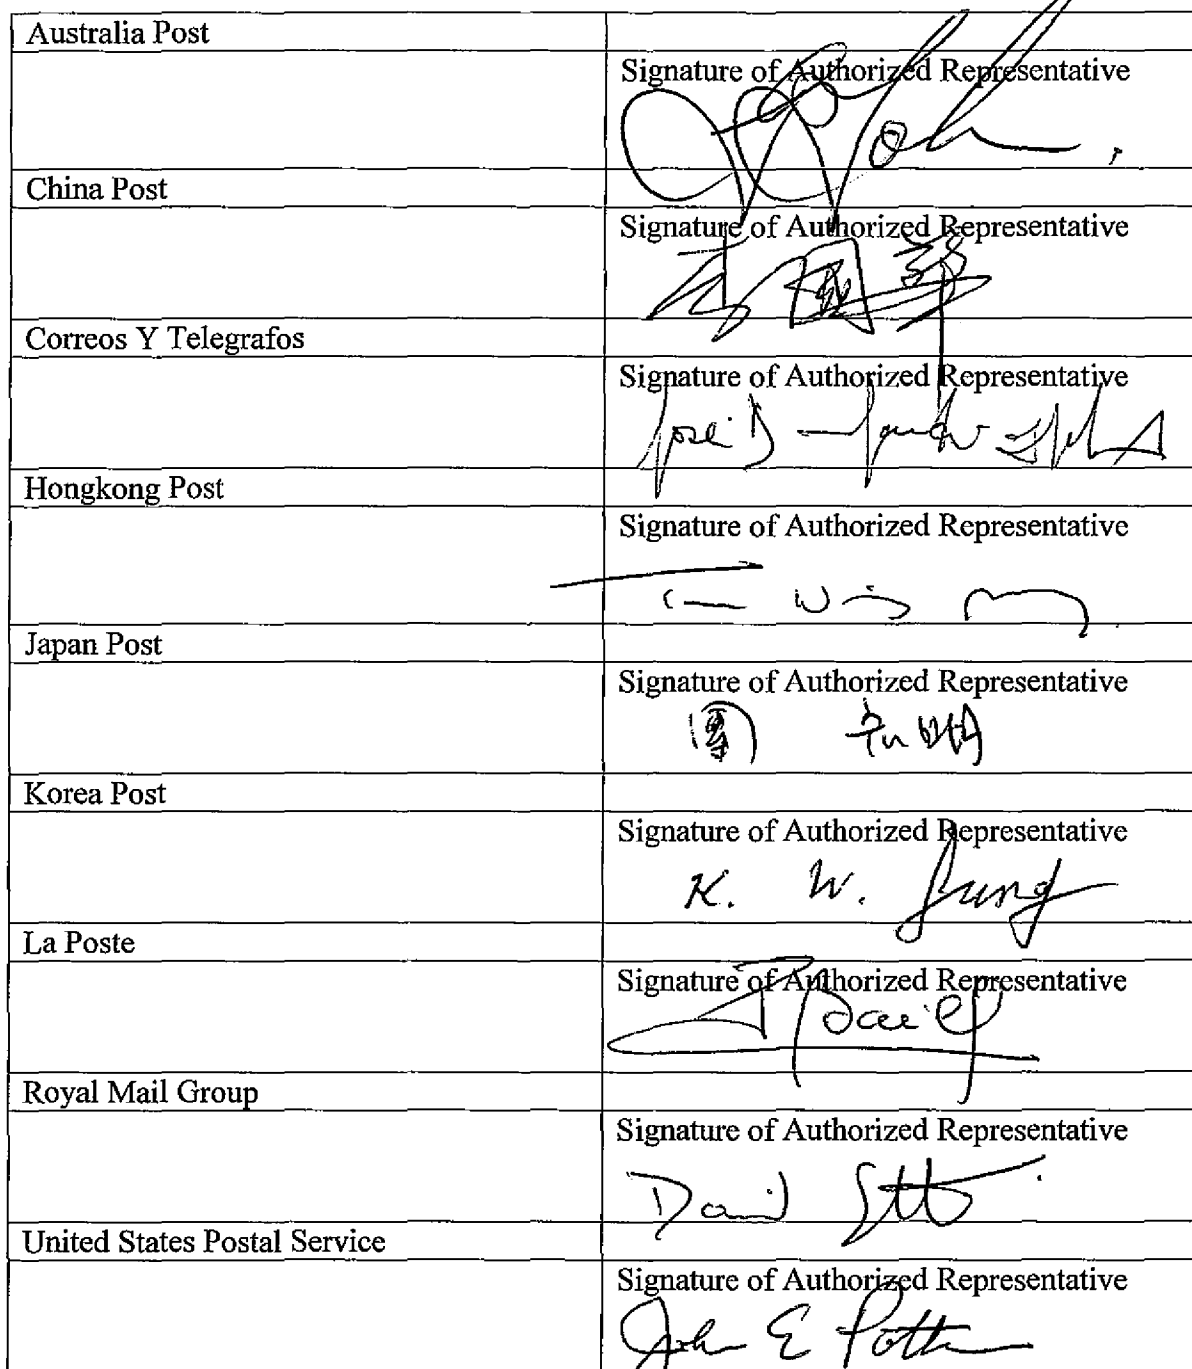 Australia Post
Signature of Authorized Representative
China Post
Signature of Authorized Representative
Correos Y Telegrafos
Signature of Authorized Representative
Hongkong Post
Signature of Authorized Representative
Japan Post
Signature of Authorized Representative
Korea Post
Signature of Authorized Representative
K. W. Jung
La Poste
Signature of Authorized Representative
Royal Mail Group
Signature of Authorized Representative
David
United States Postal Service
Signature of Authorized Representative
John E Potter